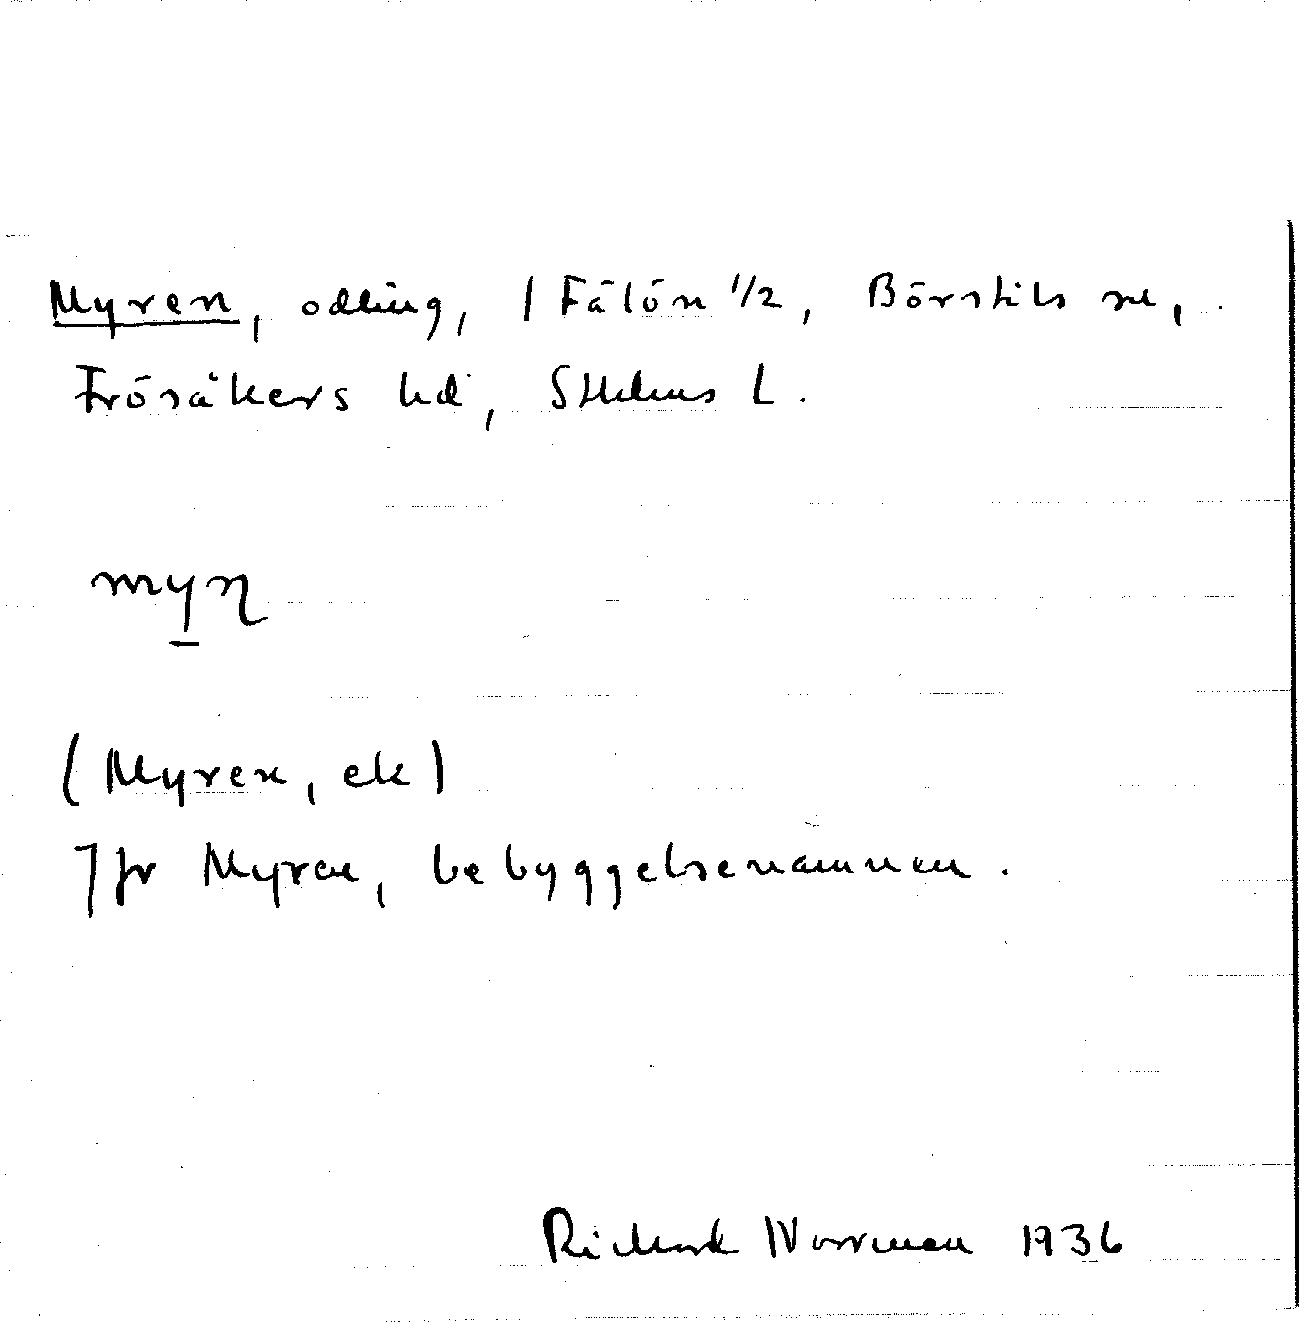 Myren, odling, / Fälön 1/2, Börstils sn,
Frösåkers hd, Sthlms L.
myn
(Myren, ek)
Jfr Myren, bebyggelsenamnen.
Richard Norrman 1936